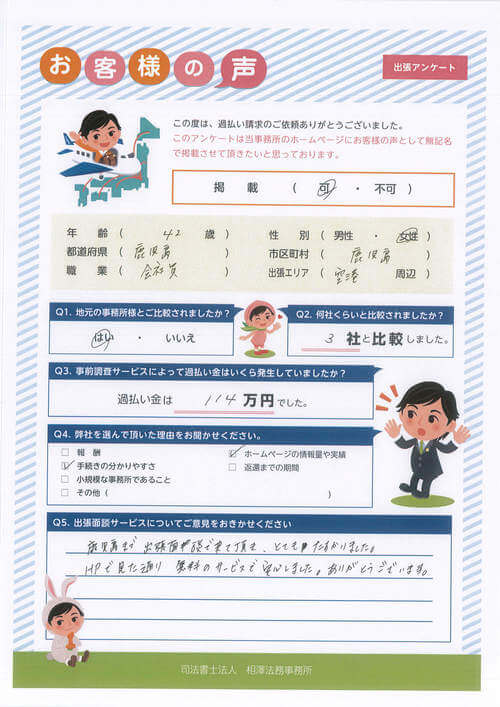 お客様の声
出張アンケート
この度は、過払い請求のご依頼ありがとうございました。
このアンケートは当事務所のホームページにお客様の声として無記名
で掲載させて頂きたいと思っております。
掲載 ( 可 ・ 不可 )
年齢 ( 42 歳 ) 性別 ( 男性 ・ 女性 )
都道府県 ( 鹿児島 ) 市区町村 ( 鹿児島 )
職業 ( 会社員 ) 出張エリア ( 空港 周辺 )
Q1. 地元の事務所様とご比較されましたか?
はい ・ いいえ
Q2. 何社くらいと比較されましたか?
3 社と比較しました。
Q3. 事前調査サービスによって過払い金はいくら発生していましたか?
過払い金は 114 万円でした。
Q4. 弊社を選んで頂いた理由をお聞かせください。
□ 報酬 ☑ ホームページの情報量や実績
☑ 手続きの分かりやすさ □ 返還までの期間
□ 小規模な事務所であること
□ その他 ( )
Q5. 出張面談サービスについてご意見をおきかせください
鹿児島まで 出張面談で来て頂き、とてもたすかりました。
HPで見た通り 無料のサービスで安心しました。ありがとうございます。
司法書士法人 相澤法務事務所